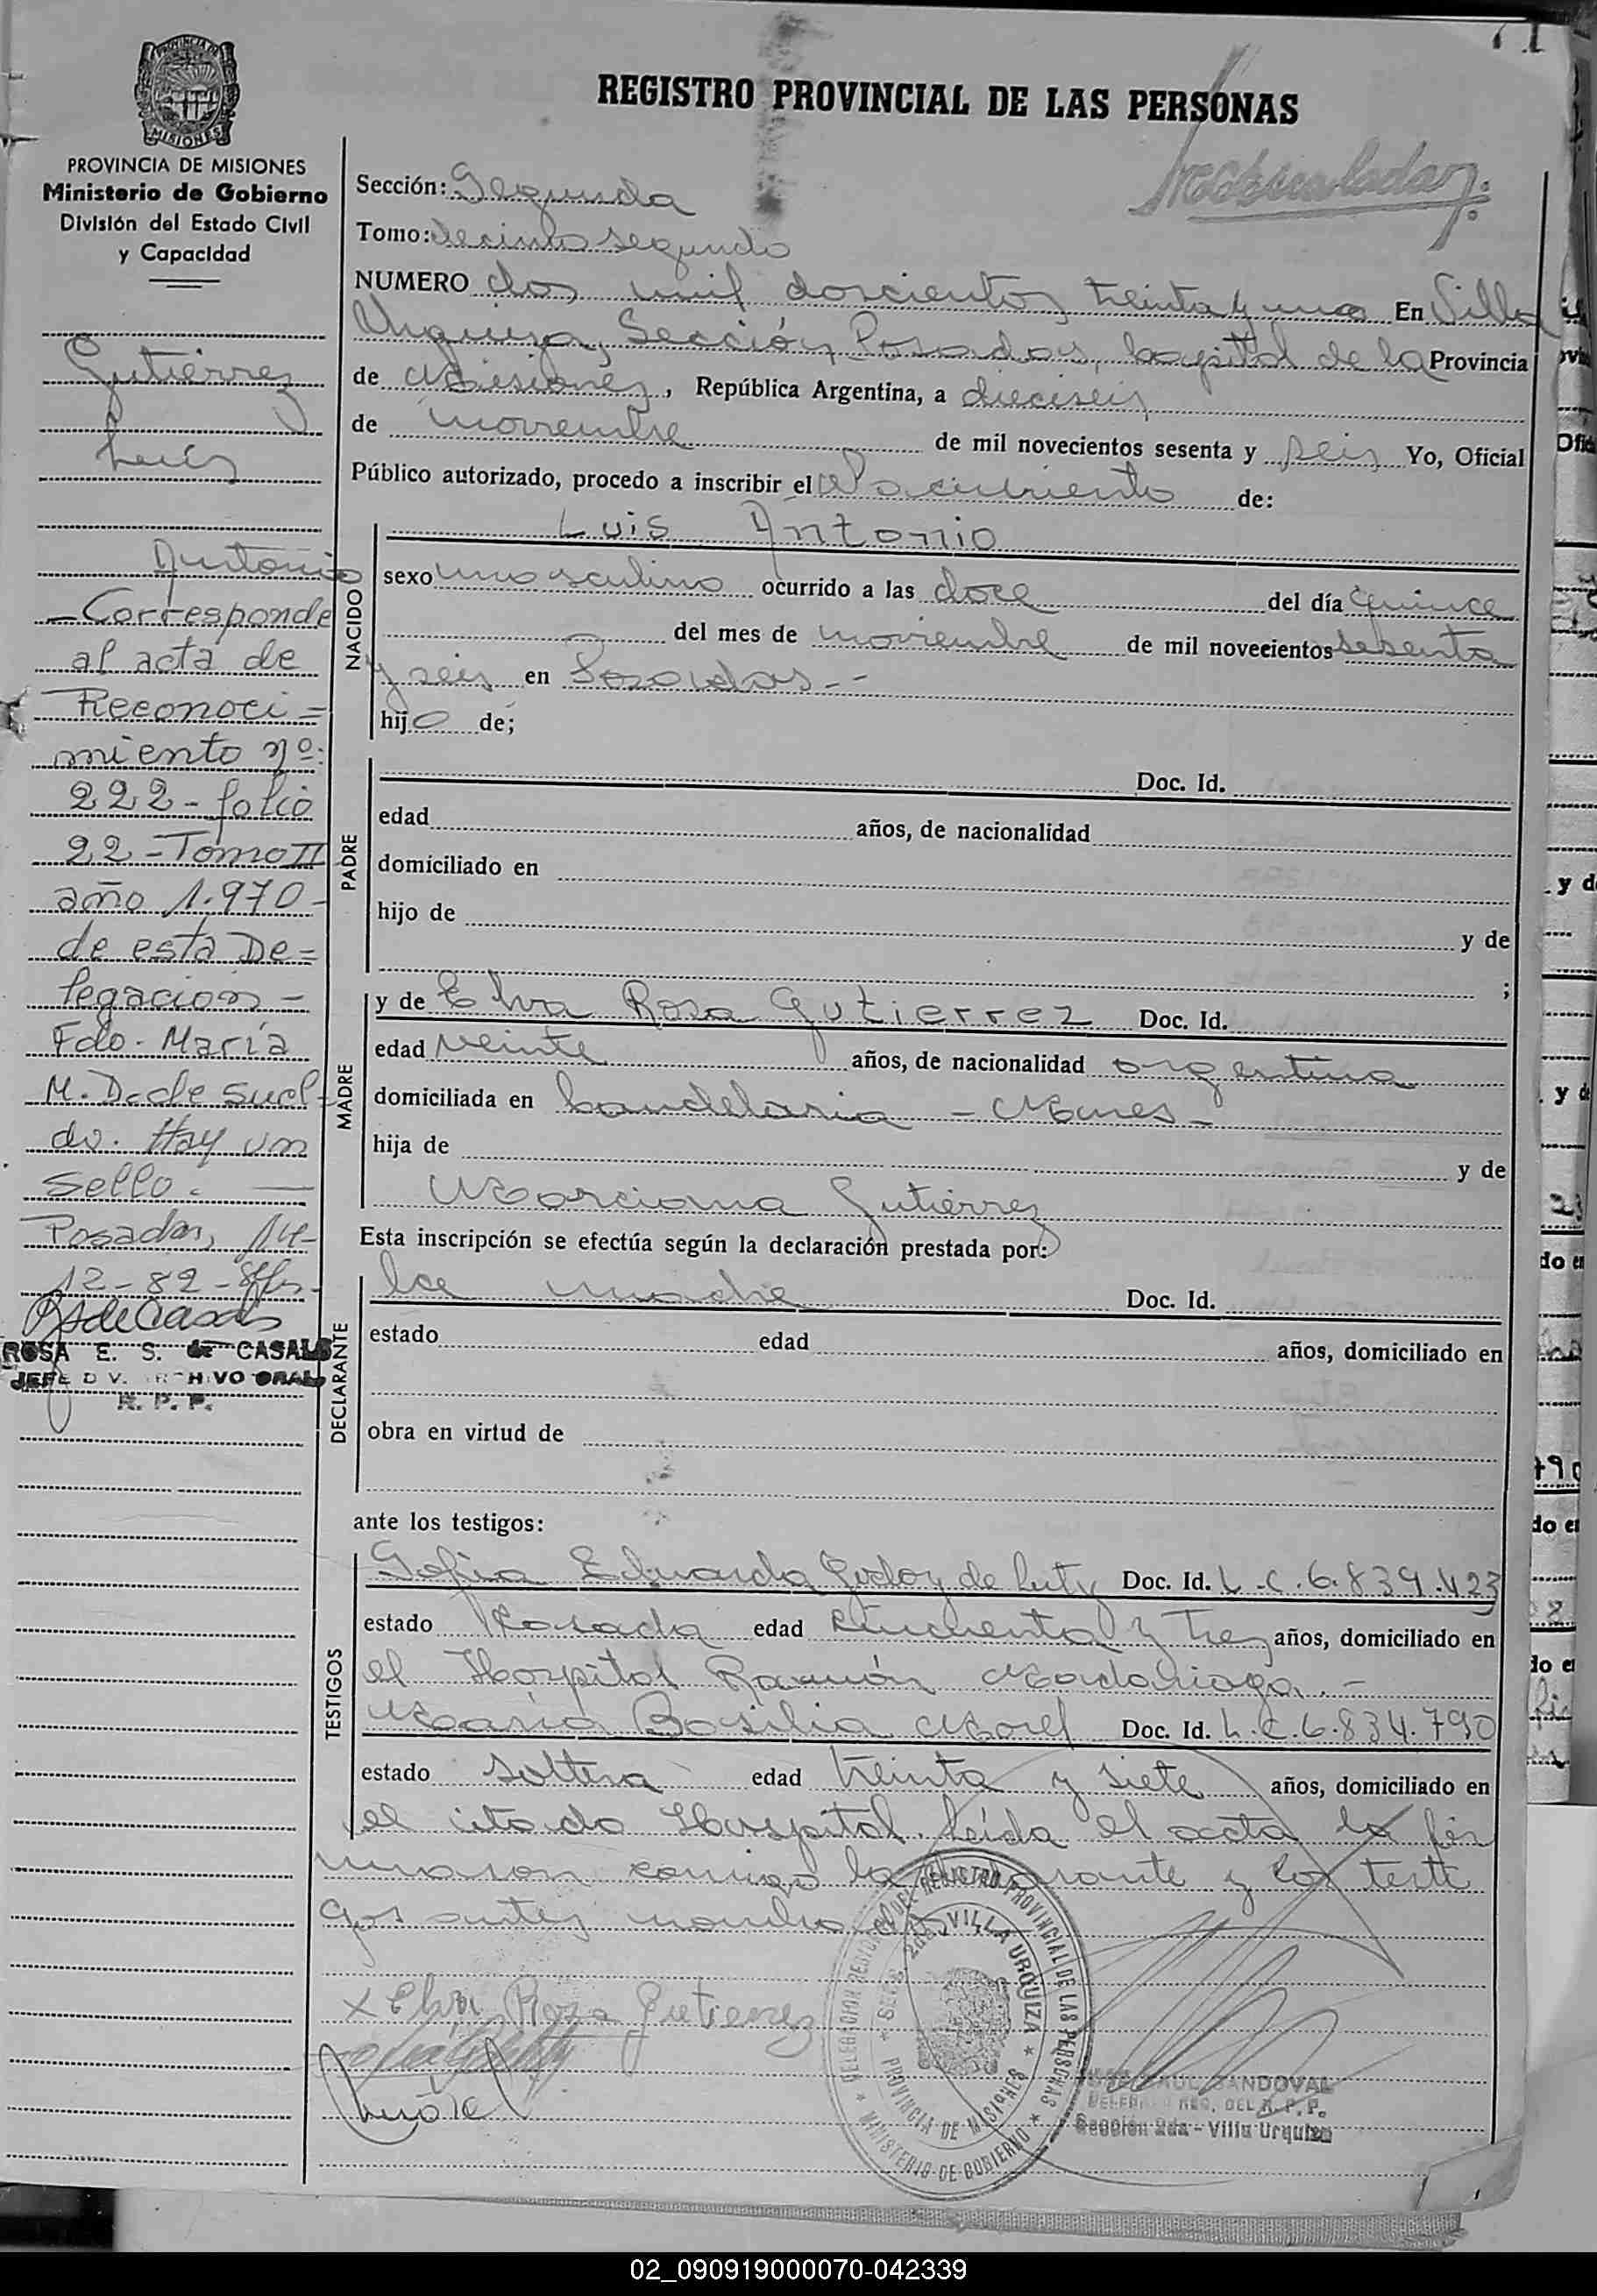 REGISTRO PROVINCIAL DE LAS PERSONAS
PROVINCIA DE MISIONES
Ministerio de Gobierno
División del Estado Civil
y Capacidad
Gutiérrez
Luis
Antonio
- Corresponde
al acta de
Reconoci=
miento nº:
222 - folio
22 - Tomo II
año 1.970 -
de esta De=
legacion -
Fdo. María
M. D. de Suel-
do. Hay un
Sello. —
Posadas, 14-
12-82-
ROSA E. S. de CASALS
JEFE DIV. ARCHIVO GRAL
R. P. P.
Sección: Segunda
Tomo: Decimo segundo
NUMERO dos mil doscientos treinta y uno En Villa
Urquiza, Sección Posadas, capital de la Provincia
de Misiones, República Argentina, a dieciseis
de noviembre de mil novecientos sesenta y seis Yo, Oficial
Público autorizado, procedo a inscribir el Nacimiento de:
NACIDO
Luis Antonio
sexo masculino ocurrido a las doce del día quince
del mes de noviembre de mil novecientos sesenta
y seis en Posadas.--
hijo de;
PADRE
Doc. Id.
edad años, de nacionalidad
domiciliado en
hijo de y de
;
MADRE
y de Elva Rosa Gutierrez Doc. Id.
edad veinte años, de nacionalidad argentina
domiciliada en Candelaria - Mnes -
hija de y de
Marciana Gutiérrez
Esta inscripción se efectúa según la declaración prestada por:
DECLARANTE
La madre Doc. Id.
estado edad años, domiciliado en
obra en virtud de
ante los testigos:
TESTIGOS
Sofia Eduarda Godoy de Luty Doc. Id. L.C. 6.839.423
estado Casada edad Cincuenta y tres años, domiciliado en
el Hospital Ramón Madariaga.-
María Basilia Morel Doc. Id. L.C. 6.834.790
estado soltera edad treinta y siete años, domiciliado en
el citado Hospital. Leída el acta la fir
maron conmigo la declarante y los testi
gos antes nombrados
x Elva Rosa Gutierrez
DELEGACION REGIONAL DEL REGISTRO PROVINCIAL DE LAS PERSONAS
SECC. 2da. VILLA URQUIZA
PROVINCIA DE MISIONES
MINISTERIO DE GOBIERNO
RAUL SANDOVAL
DELEGADO REG. DEL R. P. P.
Sección 2da - Villa Urquiza
02_090919000070-042339